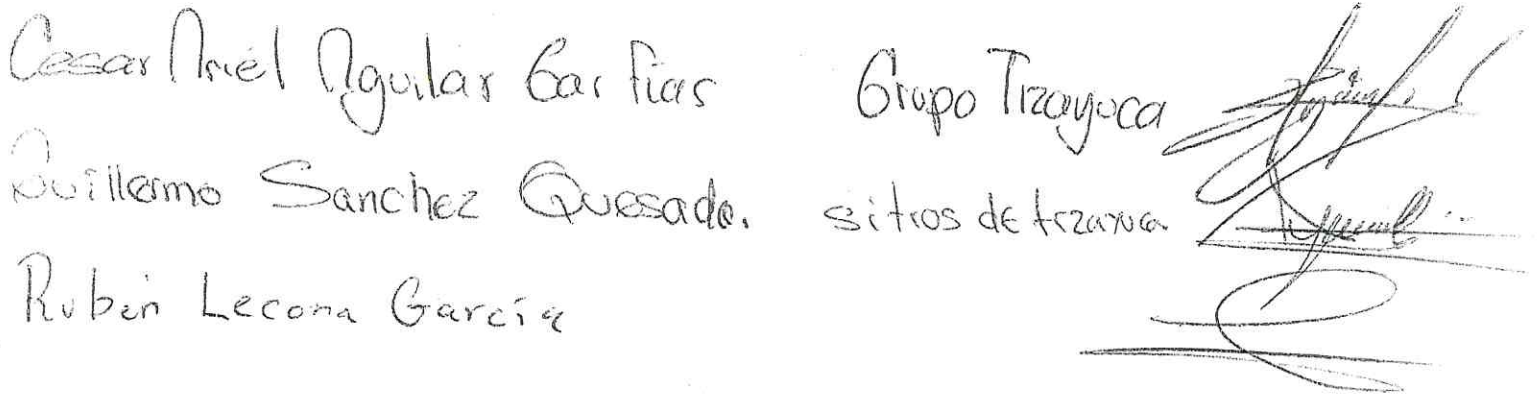 Cesar Ariel Aguilar Garfias Grupo Tizayuca
Guillermo Sanchez Quesada. sitios de tizayuca
Rubén Lecona García